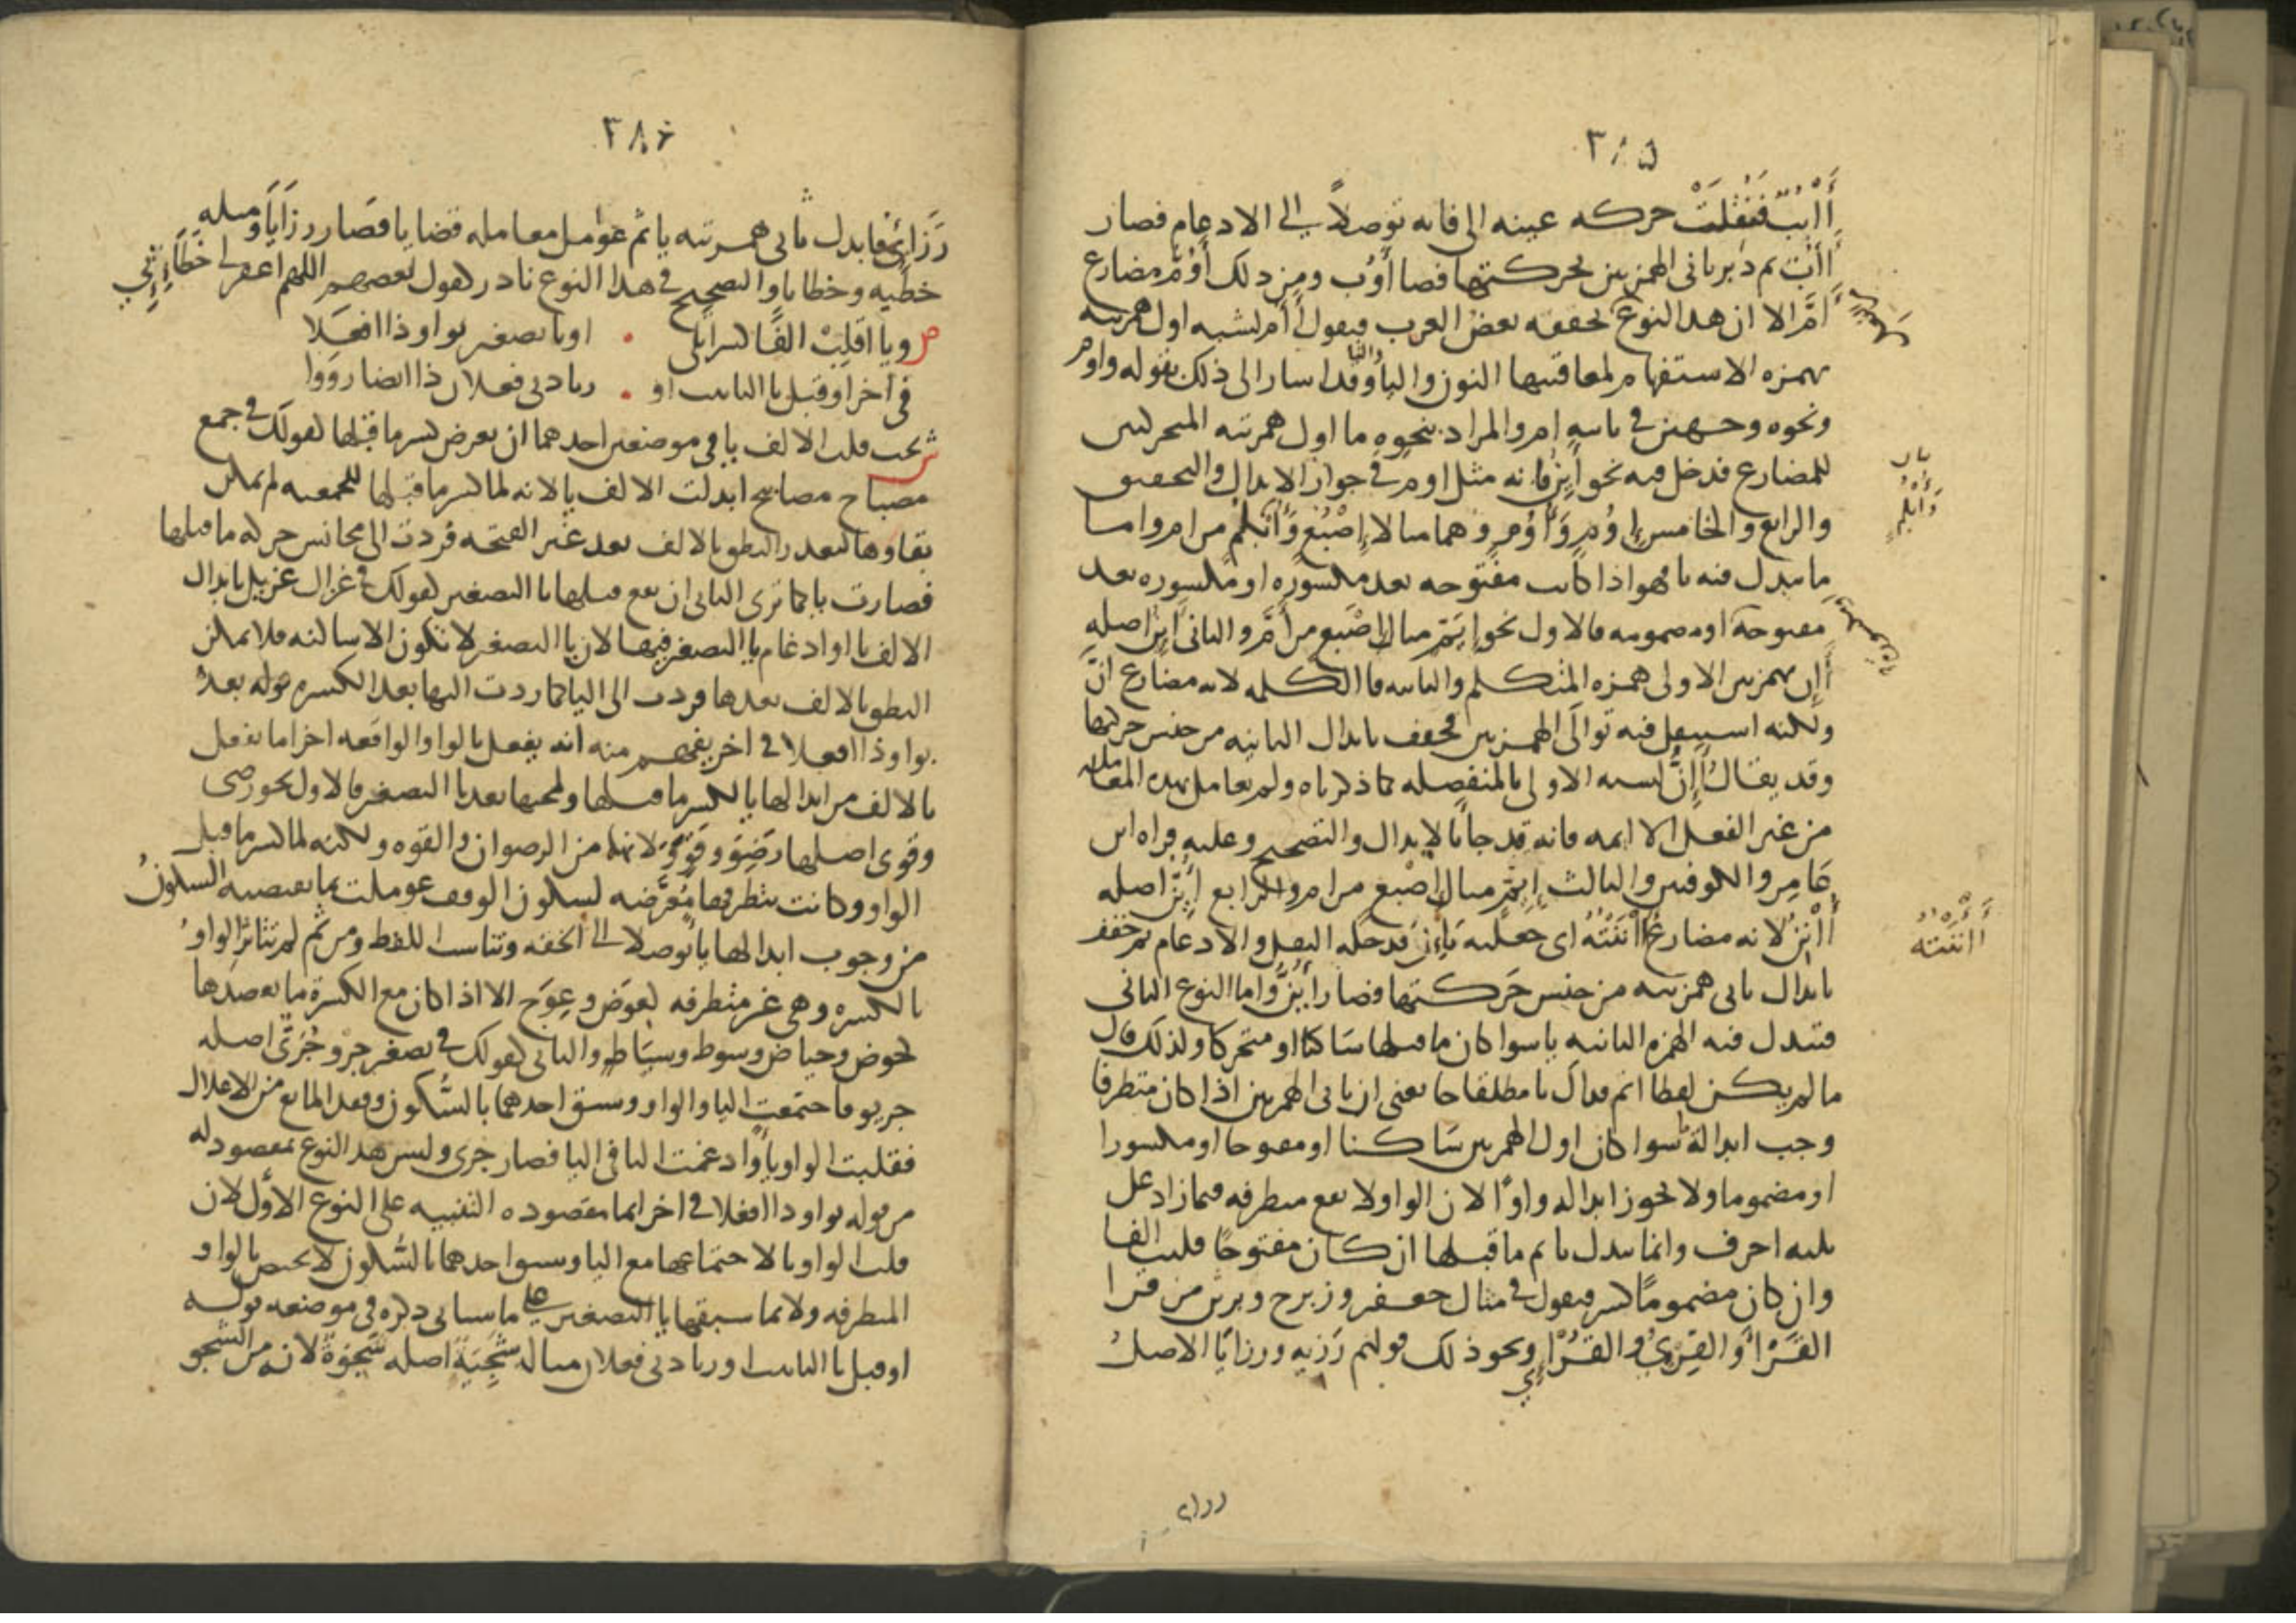 ٣٨٥
أَأْبُبُ فنقلت حركه عينه الى فائه توصلاً الى الادغام فصار
أَأُبّ ثم دبر ثانى الهمزتين بحركتها فصار أَوُبّ ومن ذلك أَوُمّ مضارع
أَمَّ الا ان هذا النوع يحققه بعض العرب فيقول أَؤُمّ لشبه اول همزتيه
بهمزه الاستفهام لمعاقبتها النون واليا والتا وقد اشار الى ذلك بقوله واوم
ونحوه وجهين فى ثانيه ام والمراد بنحوه ما اول همزتيه المتحركتين
للمضارع فدخل فيه نحو أَيِنّ فانه مثل اوم فى جواز الابدال والتحقيق
والرابع والخامس إِوُمّ وَأُوُمّ وهما مثالا إِصْبُع وَأُبْلُم من ام واما
ما يبدل منه يا فهو اذا كانت مفتوحه بعد مكسوره او مكسوره بعد
مفتوحة او مضمومه فالاول نحو إِيَمّ مثال إِصْبَع من أَمَّ والثانى أَيِنّ اصله
أَإِنّ بهمزتين الاولى همزه المتكلم والثانيه فا الكلمه لانه مضارع انّ
ولكنه استثقل فيه توالى الهمزتين فخفف بابدال الثانيه من جنس حركتها
وقد يقال أَإِنّ لشبه الاولى بالمنفصله كما ذكرناه ولم يعامل بهذه المعامله
من غير الفعل الا ايمه فانه قد جا بالابدال والتصحيح وعليه قراه ابن
عامر والكوفيين والثالث إِيِمّ مثال إِصْبِع من ام والرابع أُيِنّ اصله
أُأْنِنُ لانه مضارع أَأْنَنْتُهُ اى جعلته يَإِنّ فدخله النقل والادغام ثم خفف
بابدال ثانى همزتيه من جنس حَركتها فصار أُيِنّ واما النوع الثانى
فتبدل فيه الهمزه الثانيه يا سوا كان ما قبلها سَاكنا او متحركا ولذلك قال
ما لم يكن لفظا اتم فذاك يا مطلقا جا يعنى ان ثانى الهمزتين اذا كان متطرفا
وجب ابداله يا سوا كان اول الهمزتين سَاكنا او مفتوحا او مكسورا
او مضموما ولا يجوز ابداله واوًا لان الواو لا تقع متطرفه فيما زاد على
ثلثه احرف وانما تبدل يا ثم ما قبلها ان كان مفتوحًا قلبت الفا
وان كان مضمومًا كسر فيقول فى مثال جعفر وزبرج وبرثن من قرا
القَرْأَى والقِرْئِى والقُرْئِى ونحو ذلك قولهم رَزيه ورزايَا الاصل
أَأْنَنْتُهُ
٣٨٦
رَزَائئ فابدل ثانى همزتيه يا ثم عومل معامله قضايا فصَار رزَايَا ومثله
خطيه وخطايا والتصحيح فى هذا النوع نادر كقول بعضهم اللهم اغفر لى خطَائِئِي
ص ويا اقلِبْ الفًا كسرًا تلى . او يا تصغير بواو ذا افعَلا
فى آخر او قبل تا التانيث او . زيادتى فعلان ذا ايضا رَوَوا
ش يجب قلب الالف يا فى موضعين احدهما ان يعرض كسر ما قبلها كقولك فى جمع
مصباح مصابيح ابدلت الالف يا لانه لما كسر ما قبلها للجمعيه لم يمكن
بقاوها لتعذر النطق بالالف بعد غير الفتحه فردت الى مجانس حركه ما قبلها
فصارت يا كما ترى الثانى ان يقع قبلها يا التصغير كقولك فى غزال غزيل بابدال
الالف يا او ادغام يا التصغير فيها لان يا التصغير لا تكون الا ساكنه فلا يمكن
النطق بالالف بعدها فردت الى اليا كما ردت اليها بعد الكسره قوله بعد
بواو ذا افعلا فى اخر يفهم منه انه يفعل بالواو الواقعه اخرا ما يفعل
بالالف من ابدالها يا لكسر ما قبلها ولمجيها بعد يا التصغير فالاول نحو رضى
وقوى اصلها رَضِوَ وقَوِوَ لانهما من الرضوان والقوه ولكنه لما كسر ما قبل
الواو وكانت بتطرفها مُعَرَّضه لسكون الوقف عوملت بما يقتضيه السكون
من وجوب ابدالها يا توصلا الى الخفه وتناسب اللفظ ومن ثم لم تتاثر الواو
بالكسره وهى غير متطرفه كعوَض وعِوَج الا اذا كان مع الكسرة ما يعضدها
كحوض وحياض وسوط وسياط والثانى كقولك فى تصغير جرو جُرَىّ اصله
جريو فاجتمعت اليا والواو وسبق احدهما بالسُّكون وفقد المانع من الاعلال
فقلبت الواو ياً وادغمت اليا فى اليا فصار جرى وليس هذا النوع بمقصود له
من قوله بواو ذا افعلا فى اخر انما مقصوده التنبيه على النوع الاول لان
قلب الواو يا لاجتماعها مع اليا وسبق احدهما بالسُّكون لا يختص بالواو
المتطرفه ولا بما سبقها يا التصغير على ما سياتى ذكره فى موضعه قوله
او قبل تا التانيث او زيادتى فعلان مثاله شَجِيَة اصله شَجِوَة لانه من الشجو